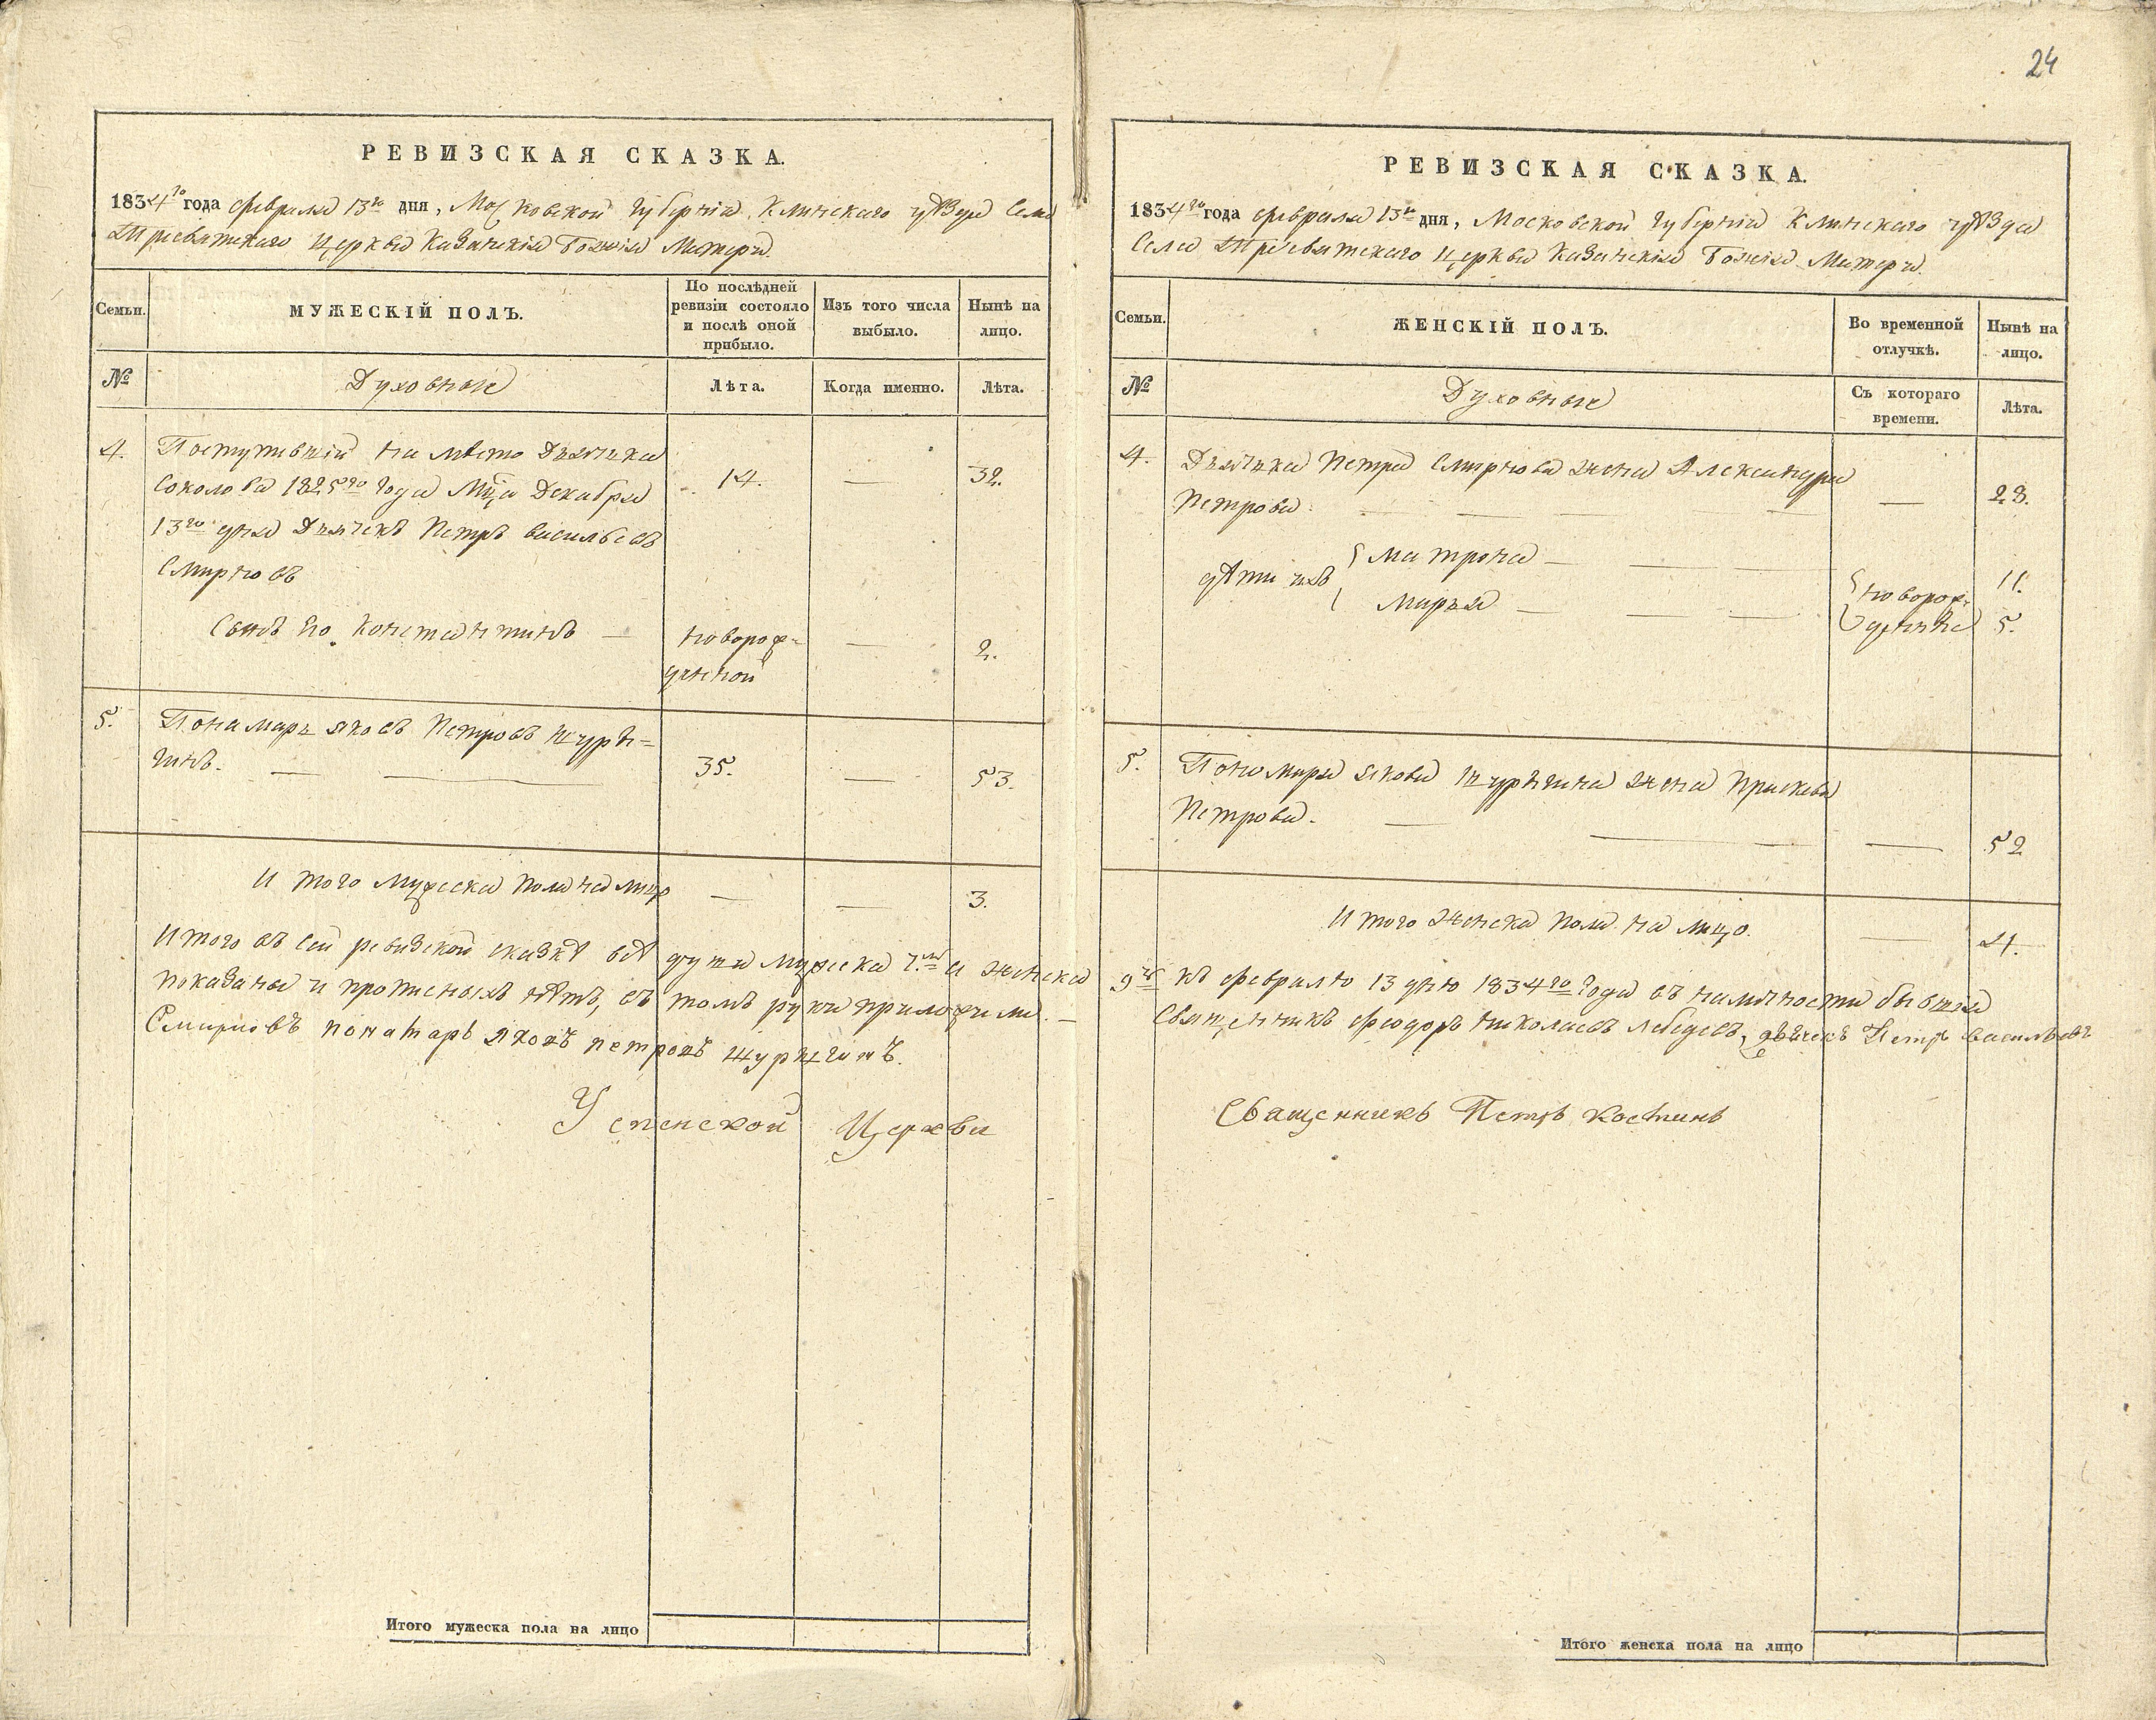 24
РЕВИЗСКАЯ СКАЗКА.
1834го года февраля 13го дня, Московской губерніи, Клинскаго уѣзда Села
Трисвятскаго церкви Казанскія Божія Матери.
Семьи.
МУЖЕСКІЙ ПОЛЪ.
По послѣдней
ревизіи состояло
и послѣ оной
прибыло.
Изъ того числа
выбыло.
Нынѣ на
лицо.
№
Духовные
Лѣта.
Когда именно.
Лѣта.
4. Поступившій на мѣсто Дьячька
Соколова 1825го года Мца Декабря 14. — 32.
13го дня Дьячекъ Петръ Васильевъ
Смирновъ
Сынъ Его Константинъ — новорож= — 2.
денной
5. Понамарь Яковъ Петровъ Журѣ=
гинъ. — — 35. — 53.
И того мужеска пола на лицо — — 3.
Итого въ сей ревизской сказкѣ всѣ души мужеска 7.мь и женска
показаны и прописныхъ нѣтъ, въ томъ руки приложили. —
Смирновъ понамарь Яковъ Петровъ Журѣгинъ.
Успенской Церкви
РЕВИЗСКАЯ СКАЗКА.
1834го года февраля 13го дня, Московской губерніи Клинскаго уѣзда
Села Трисвятскаго церкви Казанскія Божія Матери.
Семьи.
ЖЕНСКІЙ ПОЛЪ.
Во временной
отлучкѣ.
Нынѣ на
лицо.
№
Духовные
Съ котораго
времени.
Лѣта.
4. Дьячька Петра Смирнова жена Александра
Петрова. — — — — — 28.
дѣти ихъ Матрона — — — новорож= 11.
Марья — — — денные 5.
5. Пономаря Якова Журѣгина жена Прасковья
Петрова. — — — — 52
И того женска пола на лицо. — 4.
9ть къ февралю 13 дню 1834го года въ наличности бывшія
Священникъ Феодоръ Николаевъ Лебедевъ, дьячекъ Петръ Васильевъ
Священникъ Петръ Костинъ
Итого мужеска пола на лицо
Итого женска пола на лицо